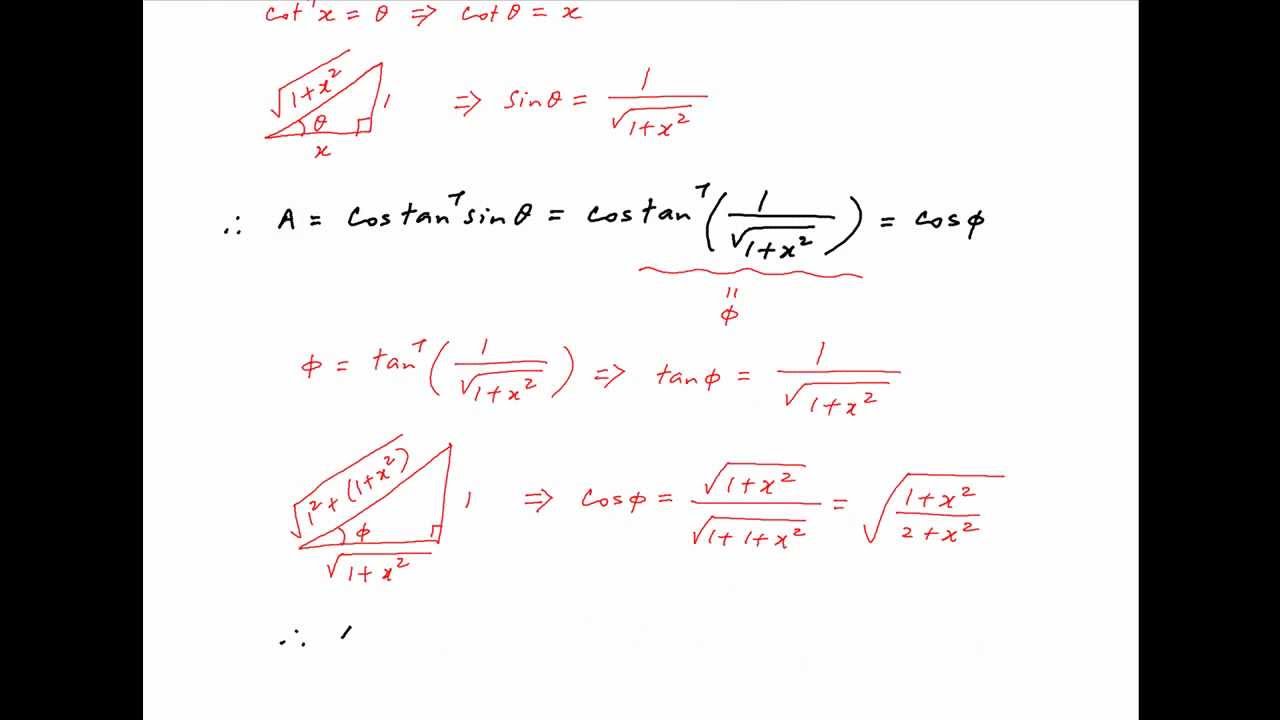 cot⁻¹x = θ ⇒ cotθ = x
√(1+x²) 1 θ x ⇒ sinθ = 1/√(1+x²)
∴ A = cos tan⁻¹ sinθ = cos tan⁻¹(1/√(1+x²)) = cosϕ
=
ϕ
ϕ = tan⁻¹(1/√(1+x²)) ⇒ tanϕ = 1/√(1+x²)
√(1²+(1+x²)) 1 ϕ √(1+x²) ⇒ cosϕ = √(1+x²)/√(1+1+x²) = √((1+x²)/(2+x²))
∴